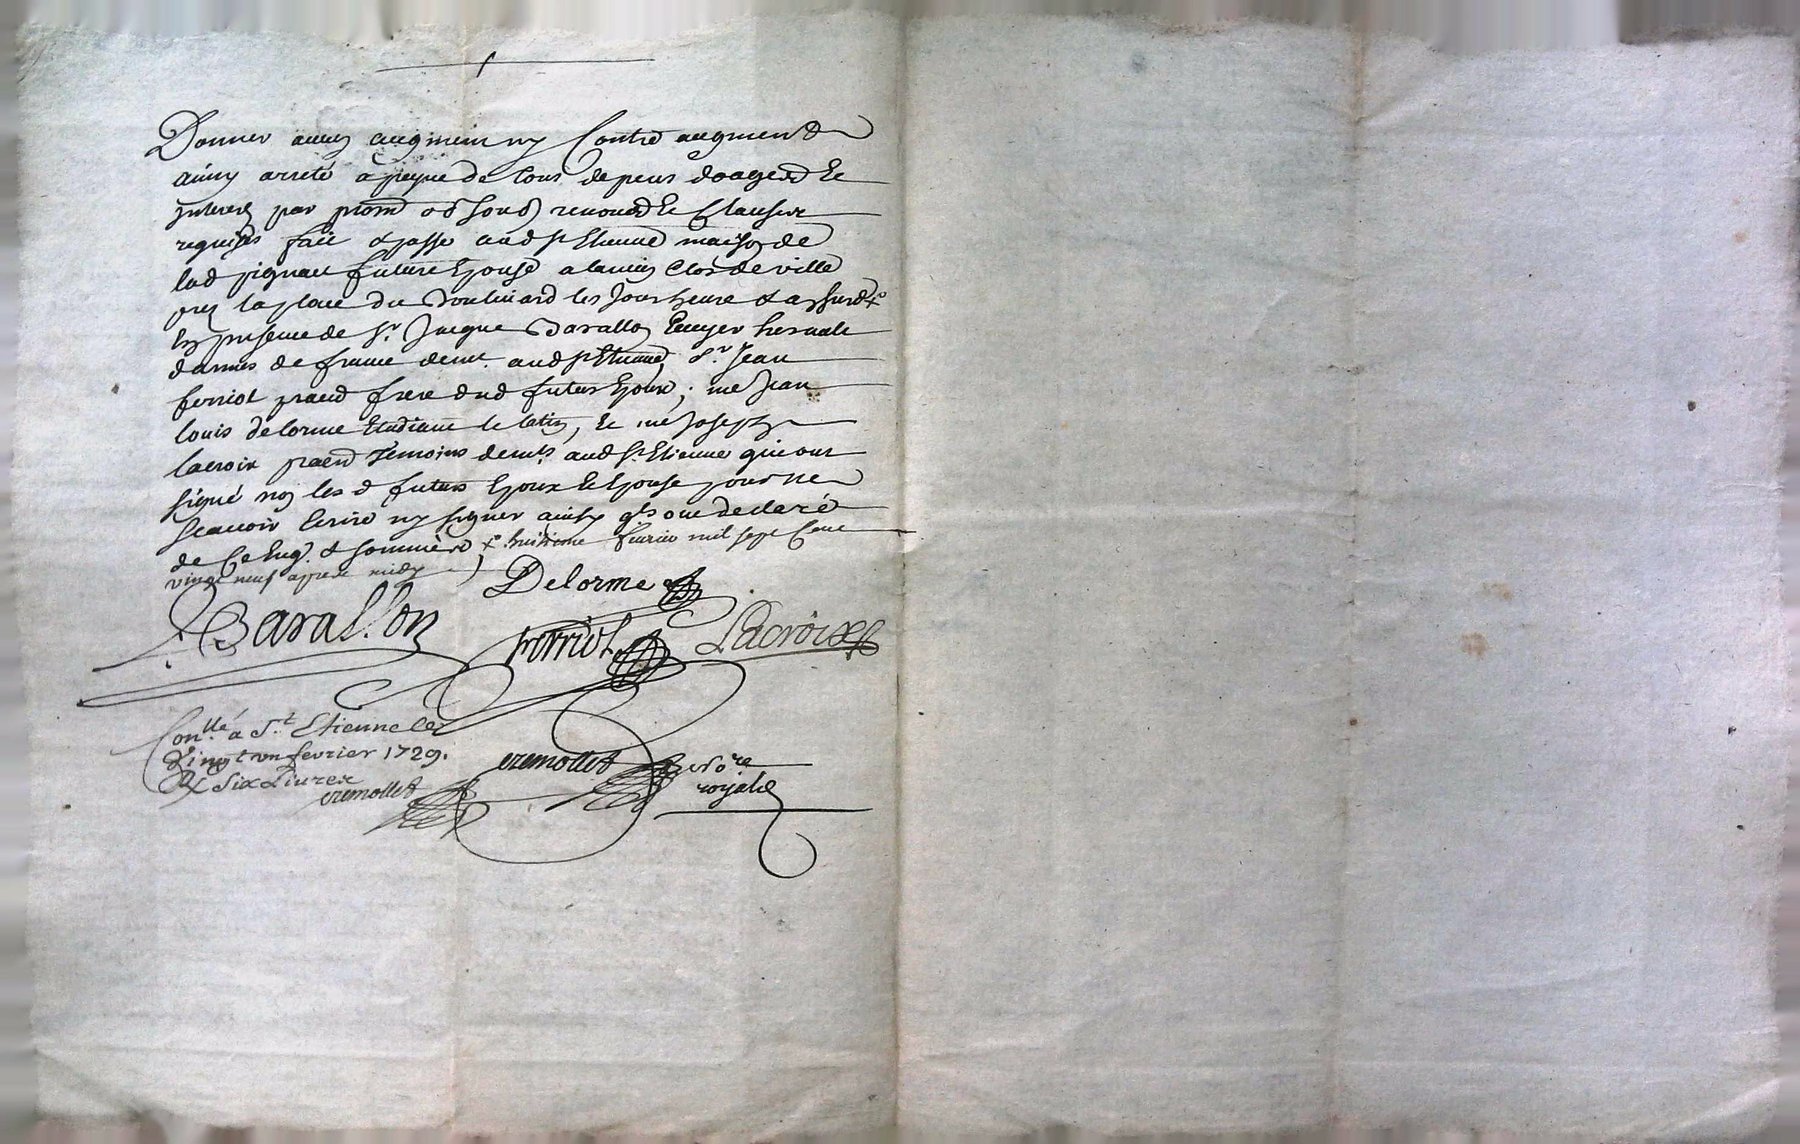 Donner aucun augment ny Contre augment
ainsy arreté a peyne de tous depens domages &
interets par promes oblions renonons & Clauses
requises fait & passe aud St Etienne maison de
lad pignau future Epouse a lancien Clos de ville
pres la place du Boulevard les Jour heure & an susd x
En presence de Sr Jacque Barallon Ecuyer herault
darmes de france demt aud St Etienne, Sr Jean
ferriol frere dud futur Epoux; me Jean
louis delorme Etudiant le latin, & me Joseph
lacroix temoins demts aud St Etienne qui ont
signé non les d futurs Epoux & Epouse pour ne
scauoir Ecrire ny signer ainsy qls ont declaré
de Ce Enq. & sommés x huitieme feurier mil sept Cent
vingt neuf apres midy
Delorme
Barallon
ferriol
Lacroix
Conllé a St. Etienne le
Vingt un fevrier 1729.
R six Livres
cremollet
cremollet
nore
royal